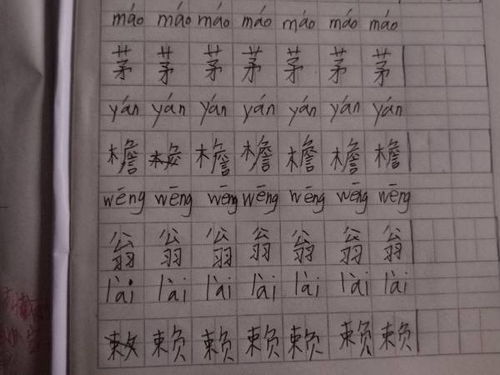 máo máo máo máo máo máo máo
茅 茅 茅 茅 茅 茅 茅
yán yán yán yán yán yán yán
檐 檐 檐 檐 檐 檐
wēng wēng wēng wēng wēng wēng wēng
翁 翁 翁 翁 翁 翁 翁
lài lài lài lài lài lài lài
赖 赖 赖 赖 赖 赖